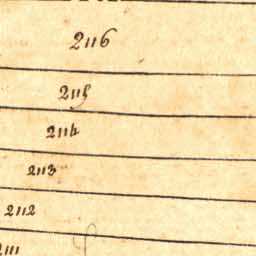 2116
2115
2114
2113
2112
2111